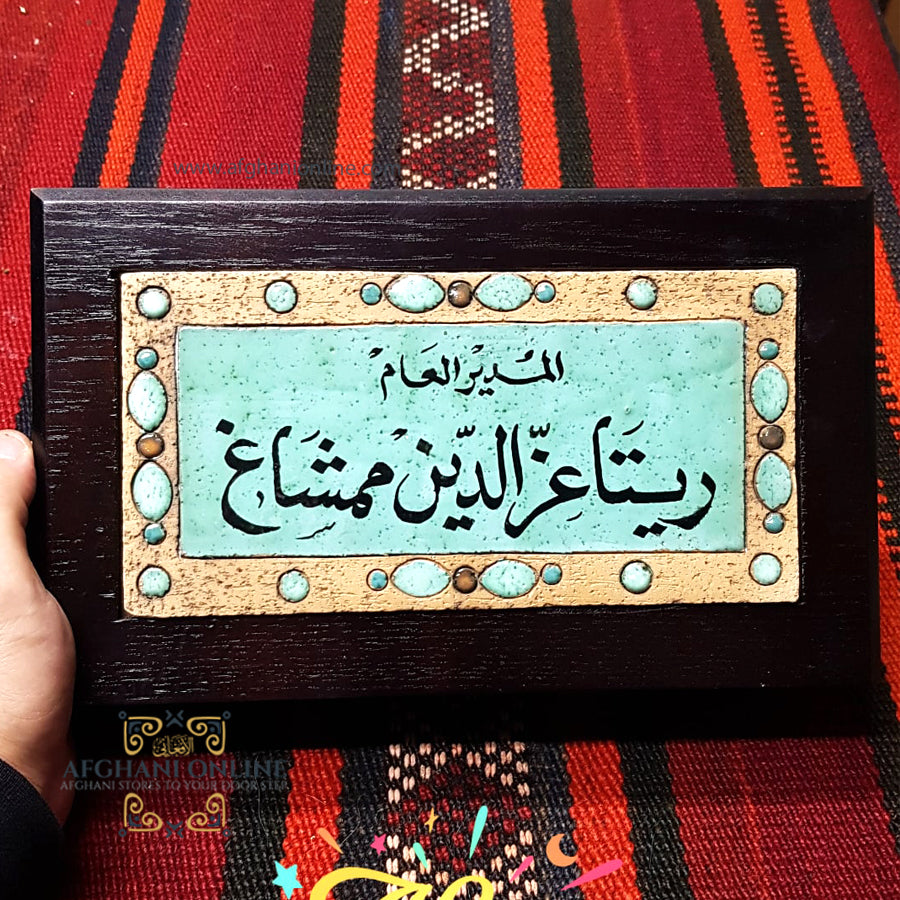 www.afghanionline.com
المدير العام
ريتا عزّ الدّين ممشاغ
الأفغاني
AFGHANI ONLINE
AFGHANI STORES TO YOUR DOOR STEP